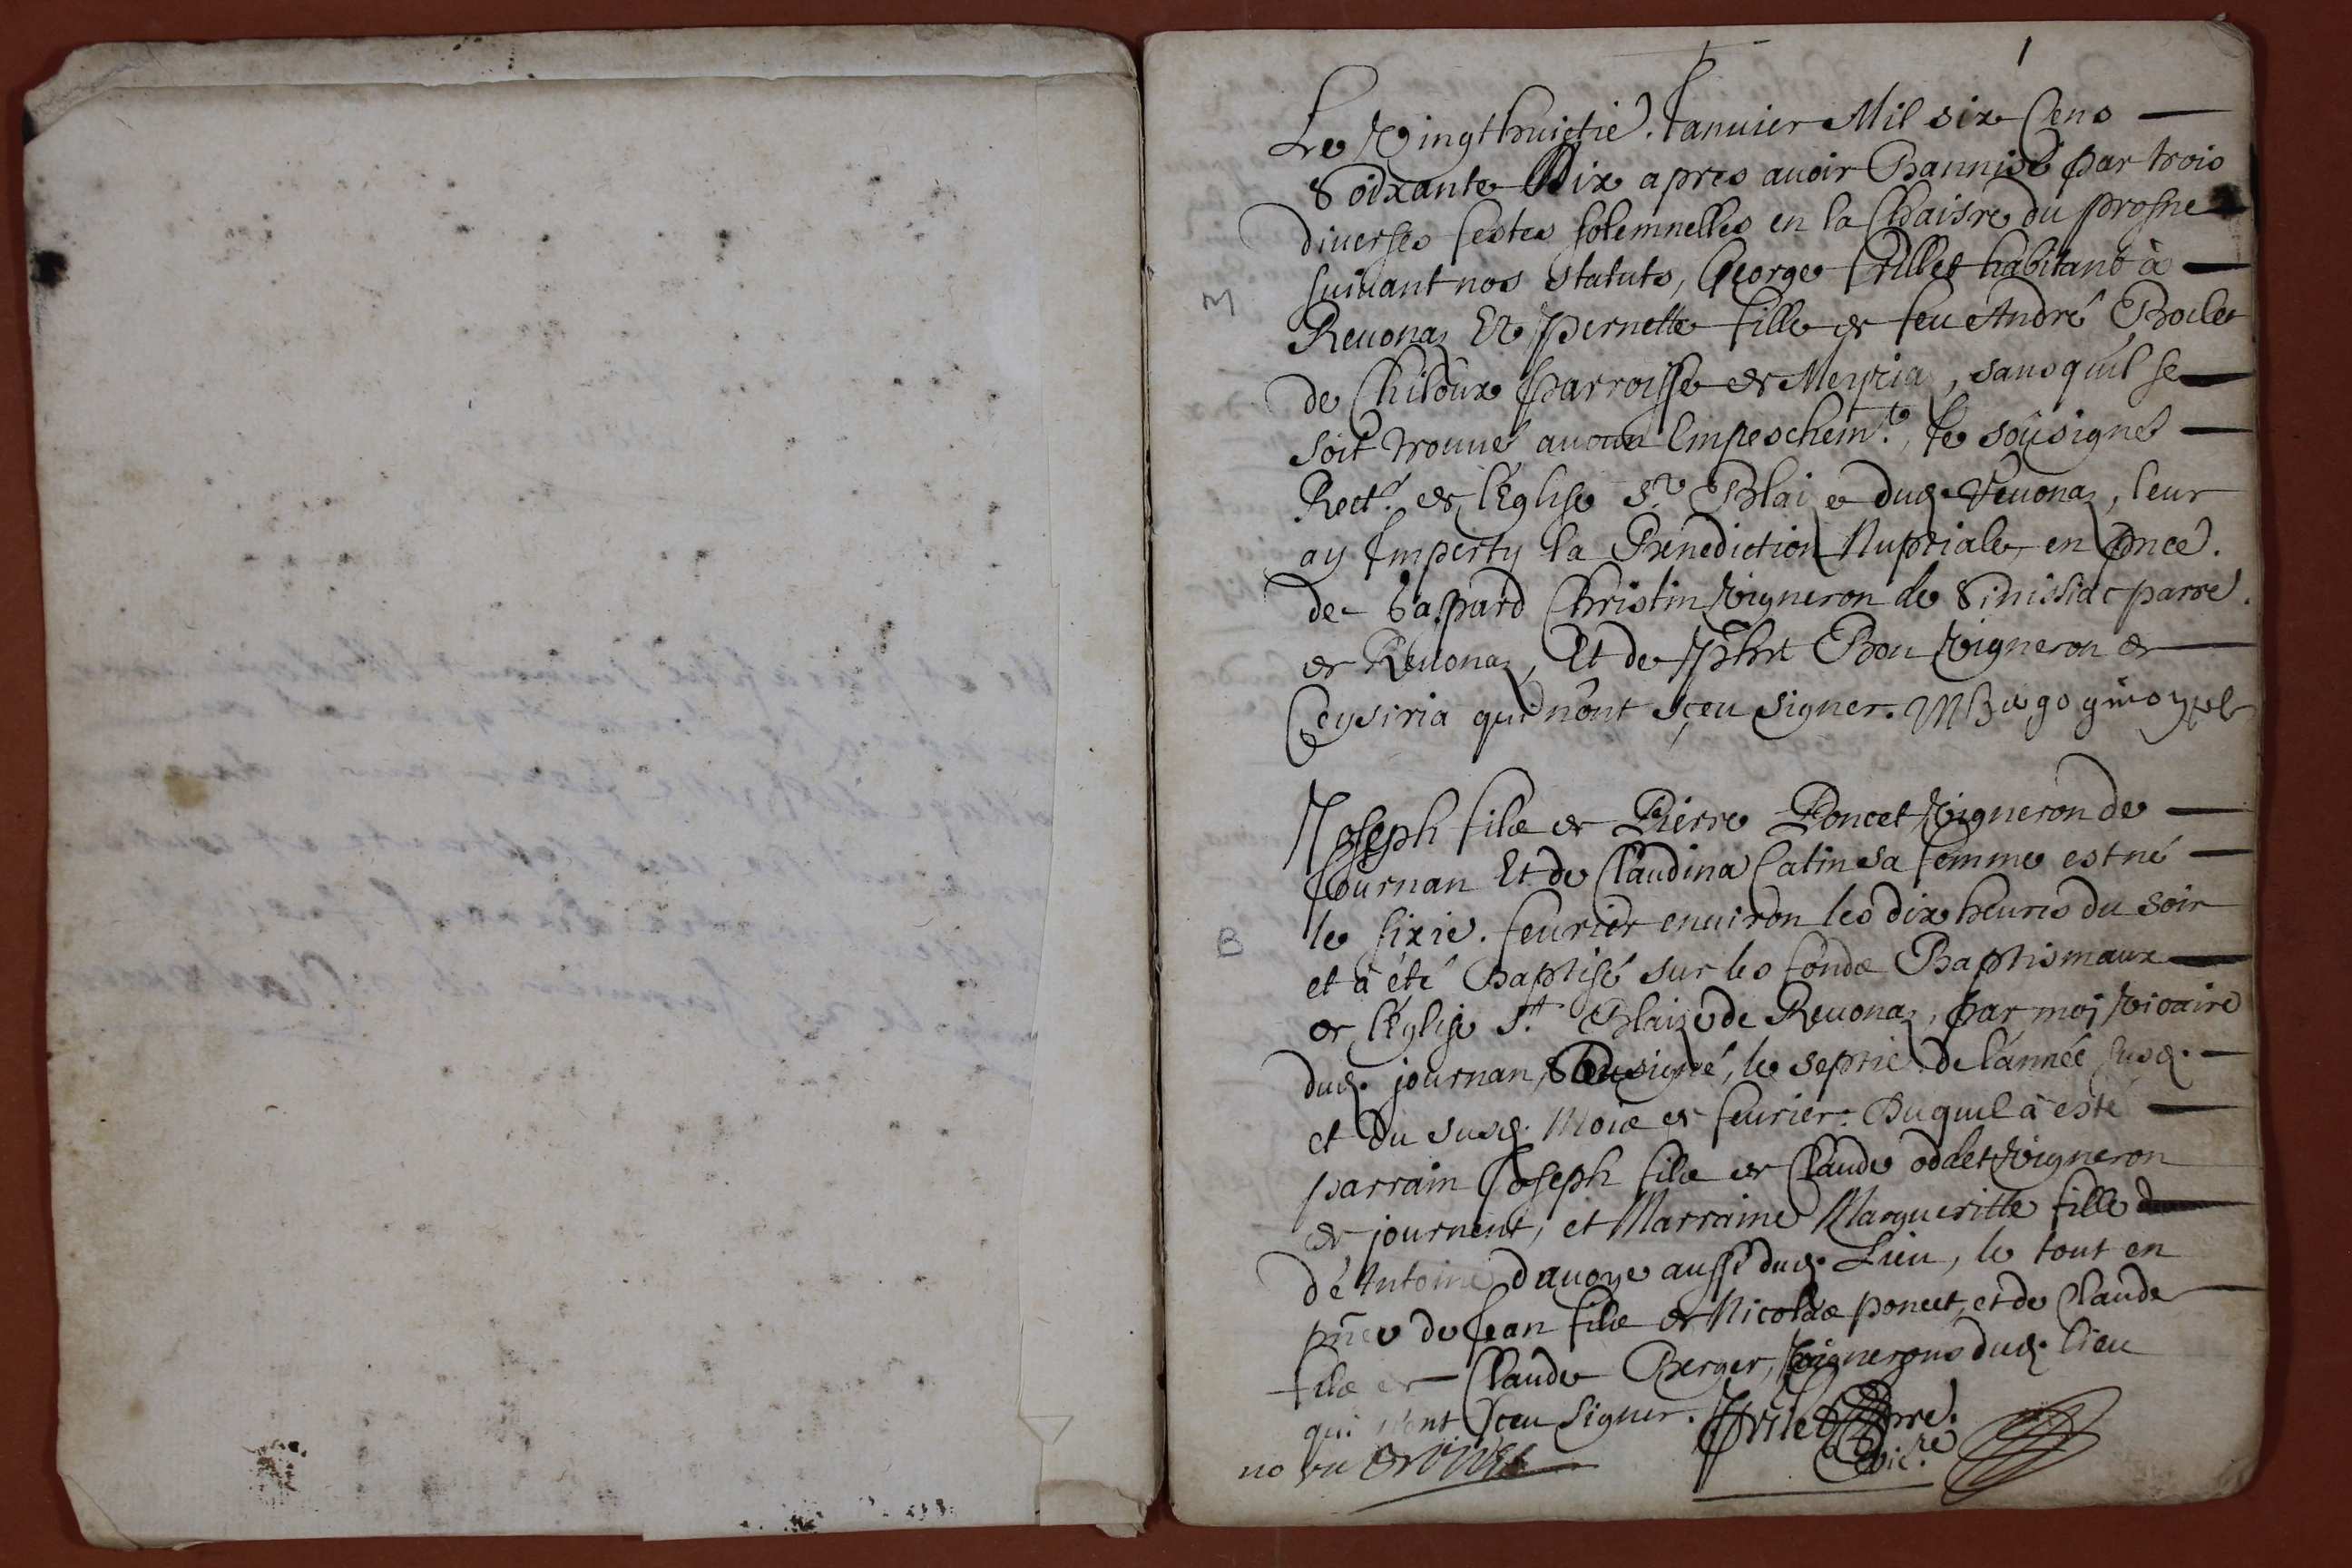 1
Le Vingthuictie. Ianuier Mil six Cens
Soixante Dix apres auoir Bannisé par trois
diuerses festes solemnelles en la Chaisre du prosne
M
suiuant nos Statuts, George habitant à
Reuonaz Et pernette fille de feu André
de parroisse de Meyria, sans quil se
soit trouué aucun Empeschem.t, Ie soûsigné
Rect.r de l'Eglise S.t Blai e dud. Reuonaz, leur
ay Imperty la Benediction Nuptiale, en pnce.
de Gaspard Christin Vigneron de parre.
de Reuonaz, Et de Phbt Bon Vigneron de
Ceysiria qui n'ont sçeu signer.
Ioseph filz de Pierre Poncet Vigneron de
Iournan Et de Claudina Catin sa femme est né
B
le sixie. feurier enuiron les dix heures du soir
et à été Baptisé sur les fondz Baptismaux
de l'Eglise S.t Blaize de Reuonaz, par moj Vicaire
dud. journan, Sousigné, le septie. de l'année susd.
et du susd. Moiz de feurier. Duquel à esté
parrain Ioseph filz de Claude oddet Vigneron
de journent, et Marraine Margueritte fille
de Antoine dauoye aussi dud. Lieu, le tout en
pñce de Iean filz de Nicolas poncet, et de Claude
filz de Claude Berger, Vignerons dud. lieu
qui n'ont sceu signer. prre.
Vic.re